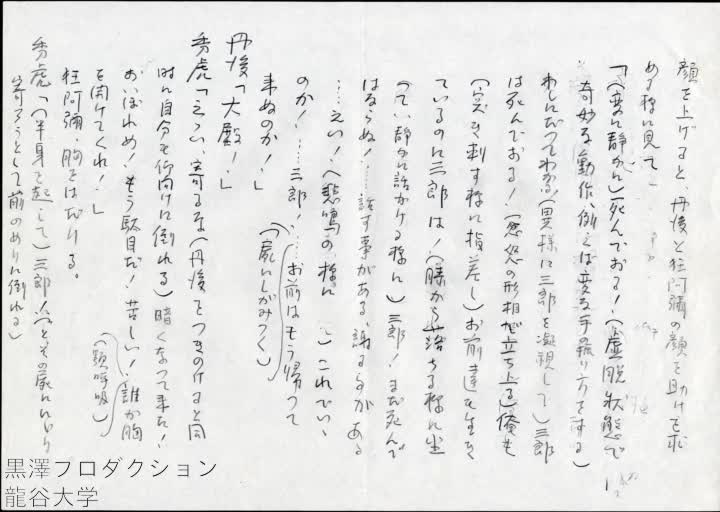 顔を上げると、丹後と狂阿彌の顔を助けを求
める様に見て
「(変に静かに)死んでおる!(虚脱状態で
奇妙な動作、倒えば変な手の振り方をする)
わしにだってわかる(異様に三郎を凝視して)三郎
は死んでおる!(忿怒の形相で立ち上る)俺も
(突き刺す様に指差し)お前達も生き
ているのに三郎は!(膝から落ちる様に坐
って、静かに話かける様に)三郎!まだ死んで
はならぬ!……話す事がある、謝る事がある
……えい!(悲鳴の様に)これでいい
のか!……三郎!……お前はもう帰って
来ぬのか!」(屍にしがみつく)
丹後「大殿!」
秀虎「えゝい、寄るな(丹後をつきのけると同
時に自分も仰向けに倒れる)暗くなって来た!
おいぼれめ!もう駄目だ!苦しい!誰か胸
を開けてくれ!」(顎呼吸)
狂阿彌、胸をはだける。
秀虎「(半身を起して)三郎!(とその屍ににじり
寄ろうとして前のめりに倒れる)
黒澤プロダクション
龍谷大学